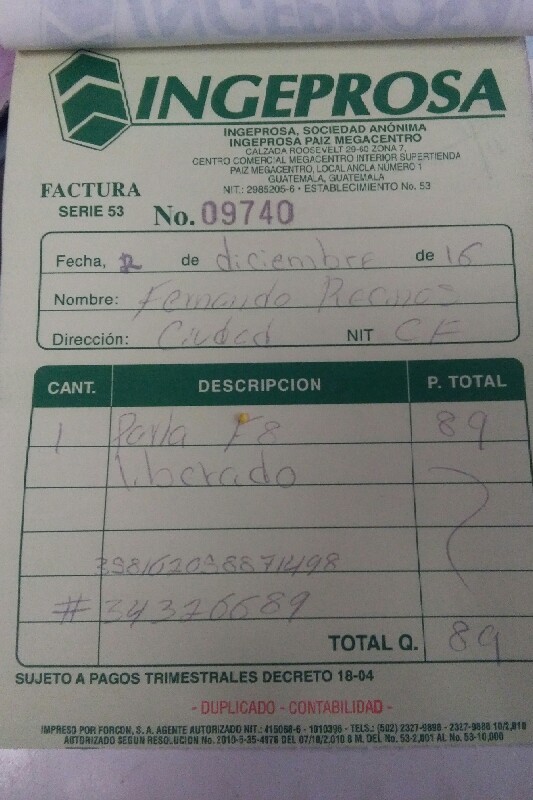 INGEPROSA
INGEPROSA, SOCIEDAD ANÓNIMA
INGEPROSA PAIZ MEGACENTRO
CALZADA ROOSEVELT 29-60 ZONA 7,
CENTRO COMERCIAL MEGACENTRO INTERIOR SUPERTIENDA
PAIZ MEGACENTRO, LOCAL ANCLA NÚMERO 1
GUATEMALA, GUATEMALA
NIT.: 2985205-6 • ESTABLECIMIENTO No. 53
FACTURA
SERIE 53 No. 09740
Fecha, 12 de diciembre de 16
Nombre: Fernando Recinos
Dirección: Ciudad NIT CF
CANT. DESCRIPCION P. TOTAL
1 F8 89
liberado
#34326689
TOTAL Q. 89
SUJETO A PAGOS TRIMESTRALES DECRETO 18-04
- DUPLICADO - CONTABILIDAD -
IMPRESO POR FORCON, S. A. AGENTE AUTORIZADO NIT.: 415068-6 - 1010396 - TELS.: (502) 2327-9898 - 2327-9888 10/2,010
AUTORIZADO SEGUN RESOLUCION No. 2010-5-35-4176 DEL 07/10/2,010 8 M. DEL No. 53-2,001 AL No. 53-10,000